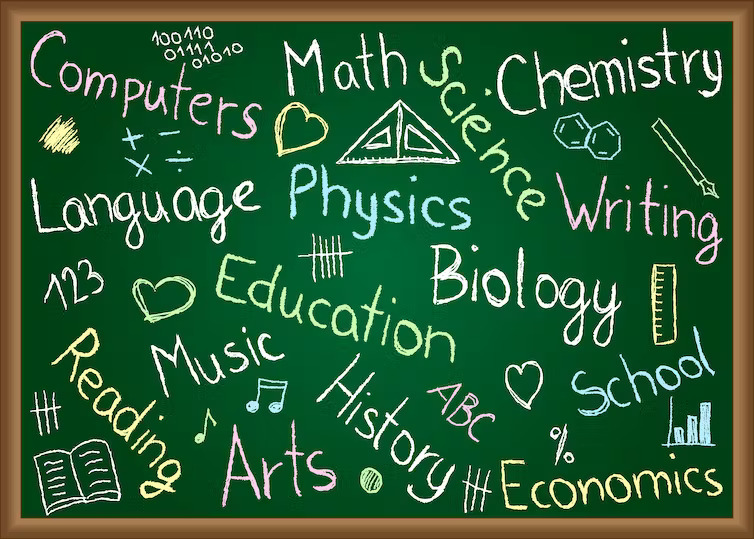 100110
01111
01010
Computers
Math
Science
Chemistry
+ −
× ÷
Language
Physics
Writing
123
Education
Biology
Reading
Music
History
ABC
School
Arts
%
Economics